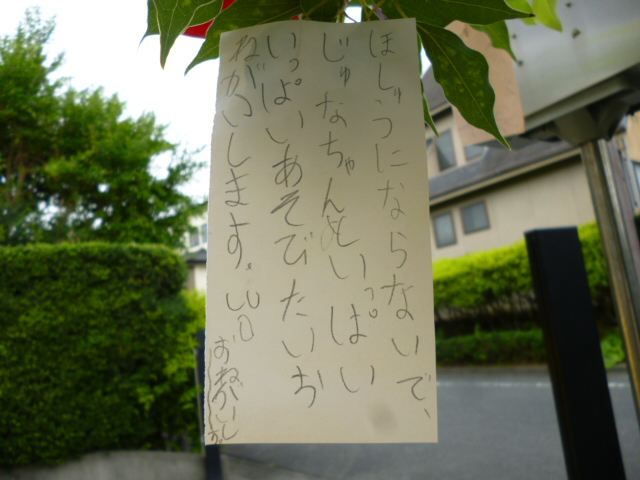 ほしゅうにならないで、
じゅなちゃんといっぱい
いっぱいあそびたいお
ねがいします。
おねがいし